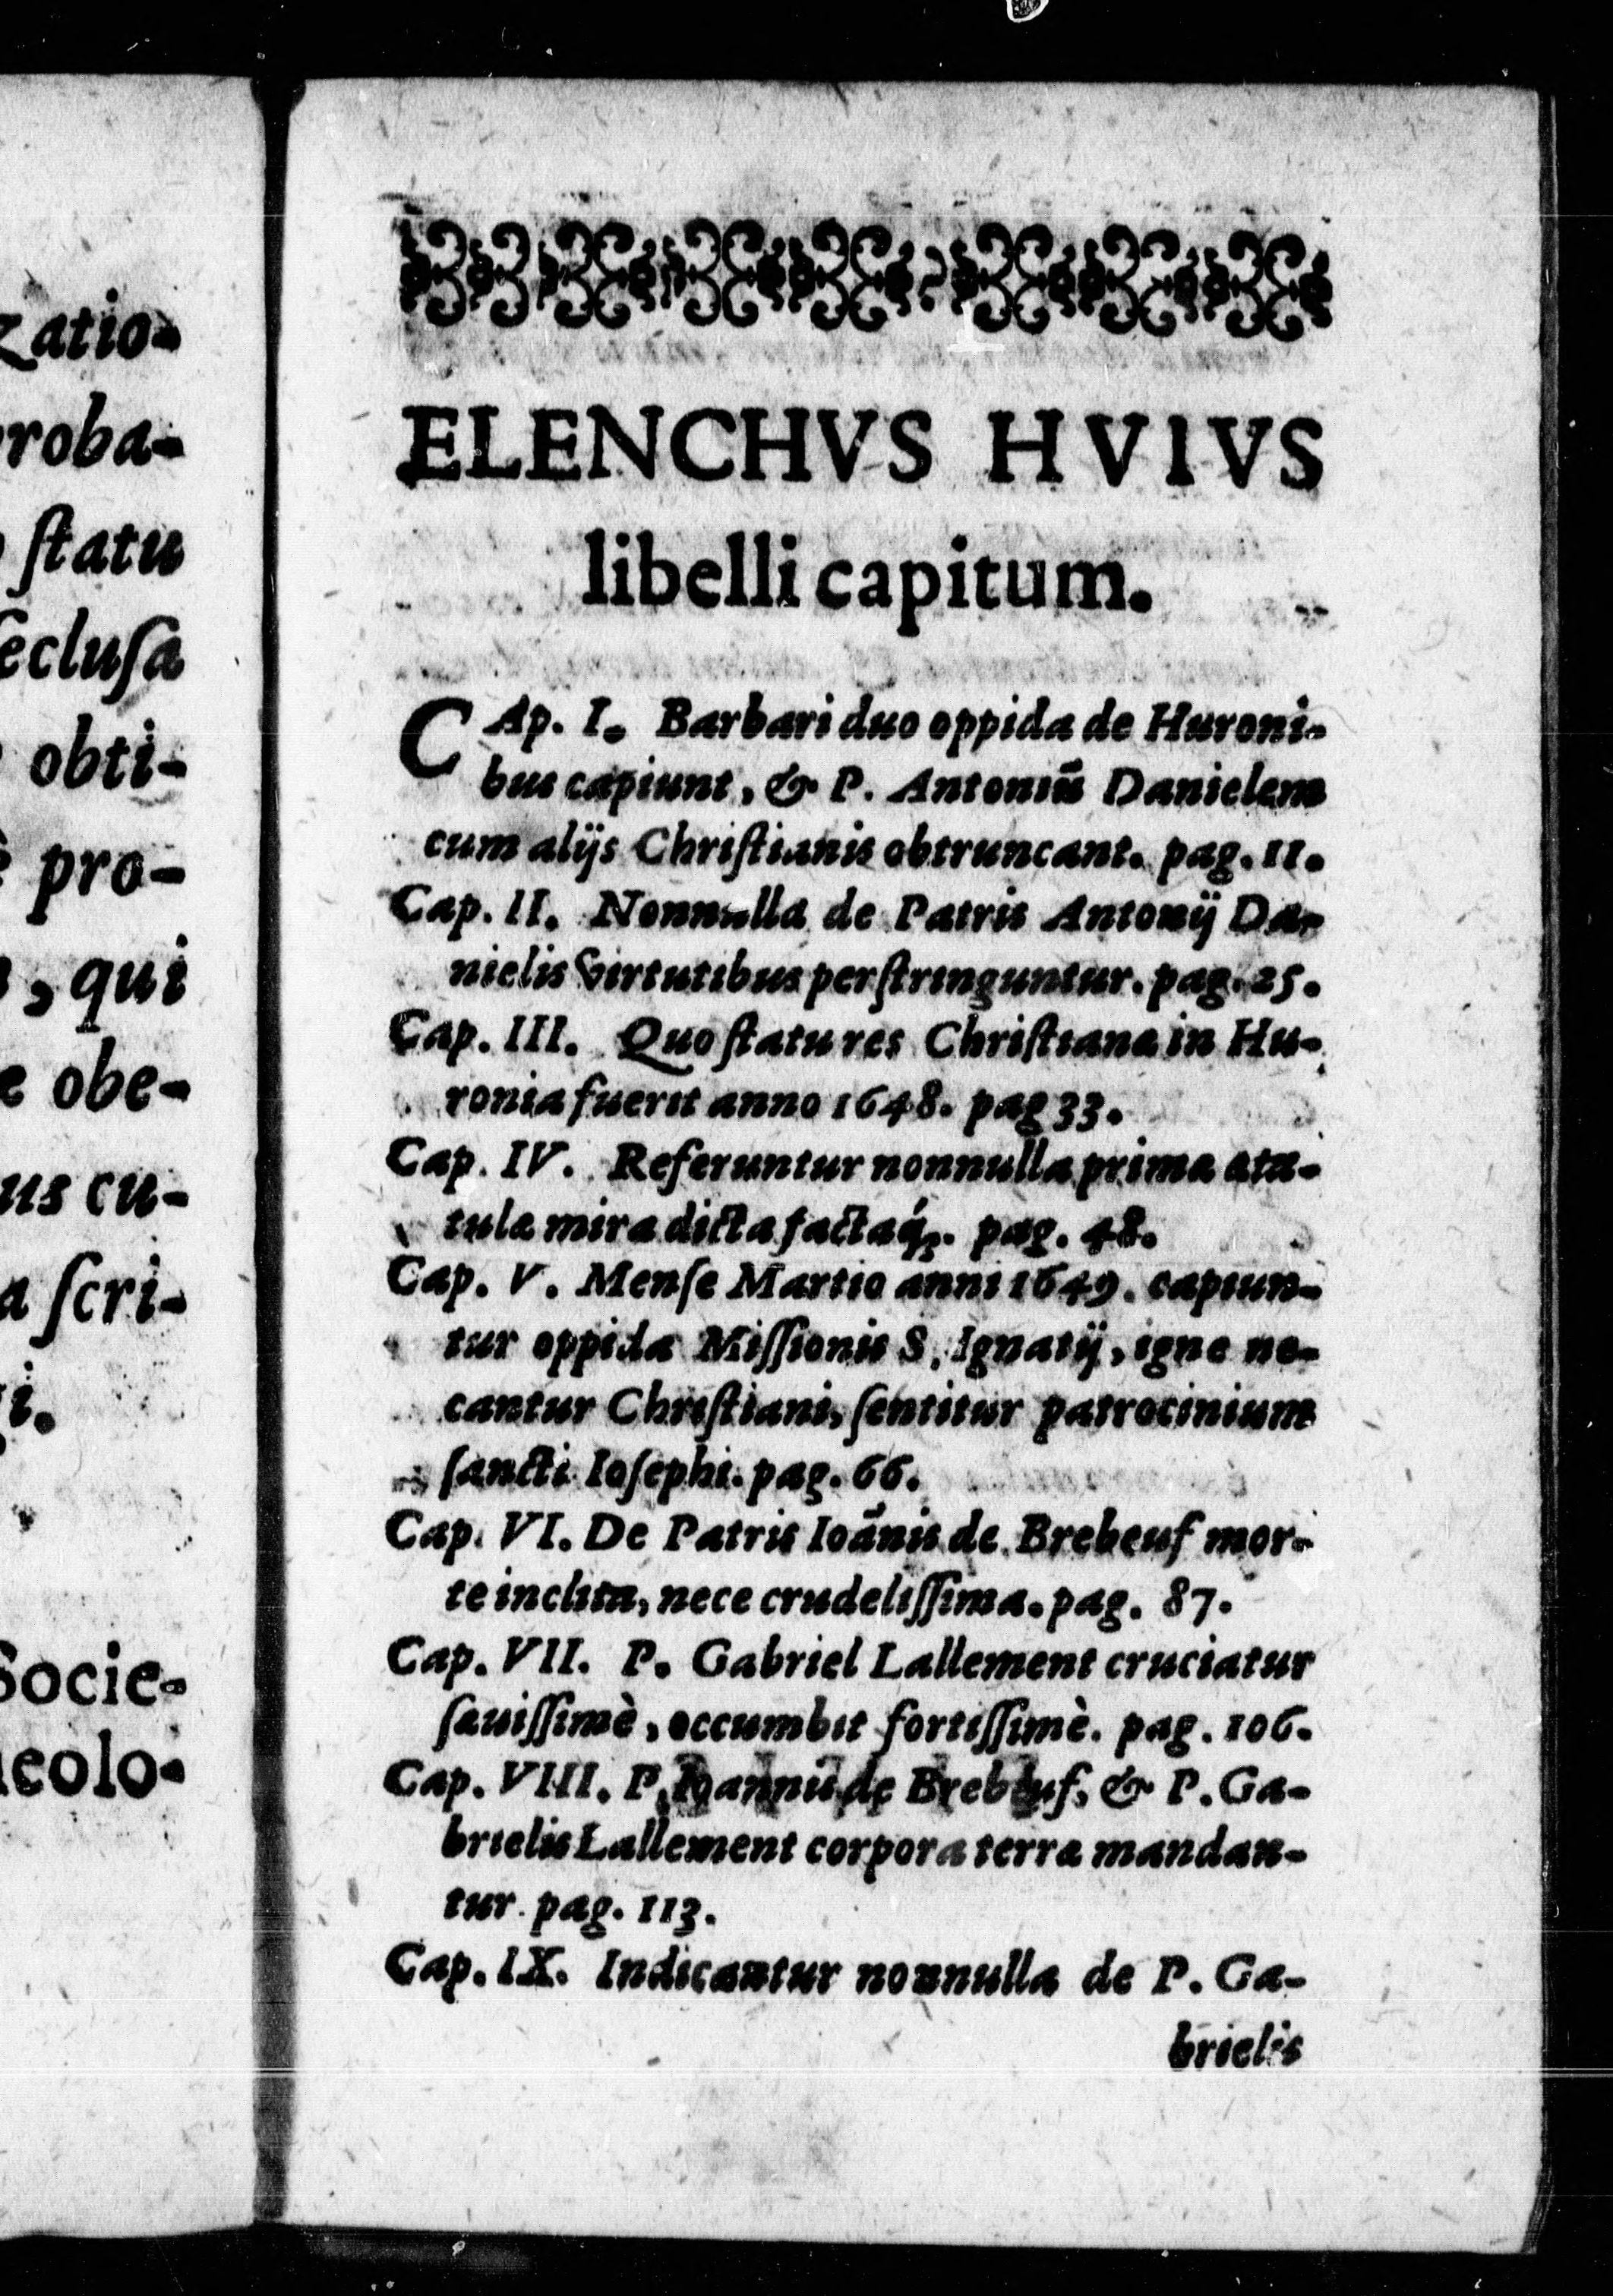 zatio-
roba-
ſtatu
ecluſa
obti-
pro-
, qui
obe-
us cu-
a ſcri-
i.
Socie-
colo-
ELENCHVS HVIVS
libelli capitum.
CAp. I. Barbari duo oppida de Huroni-
bus capiunt, & P. Antoniũ Danielem
cum alijs Chriſtianis obtruncant. pag. 11.
Cap. II. Nonnulla de Patris Antonij Da-
nielis virtutibus perſtringuntur. pag. 25.
Cap. III. Quo ſtatu res Chriſtiana in Hu-
ronia fuerit anno 1648. pag 33.
Cap. IV. Referuntur nonnulla prima æta-
tulæ mira dicta factaq́;. pag. 48.
Cap. V. Menſe Martio anni 1649. capiun-
tur oppida Miſſionis S. Ignatij, igne ne-
cantur Chriſtiani, ſentitur patrocinium
ſancti Ioſephi. pag. 66.
Cap. VI. De Patris Ioãnis de Brebeuf mor-
te inclita, nece crudeliſſima. pag. 87.
Cap. VII. P. Gabriel Lallement cruciatur
ſæuiſſimè, occumbit fortiſſimè. pag. 106.
Cap. VIII. P. Ioannis de Brebeuf, & P. Ga-
brielis Lallement corpora terræ mandan-
tur. pag. 113.
Cap. IX. Indicantur nonnulla de P. Ga-
brielis